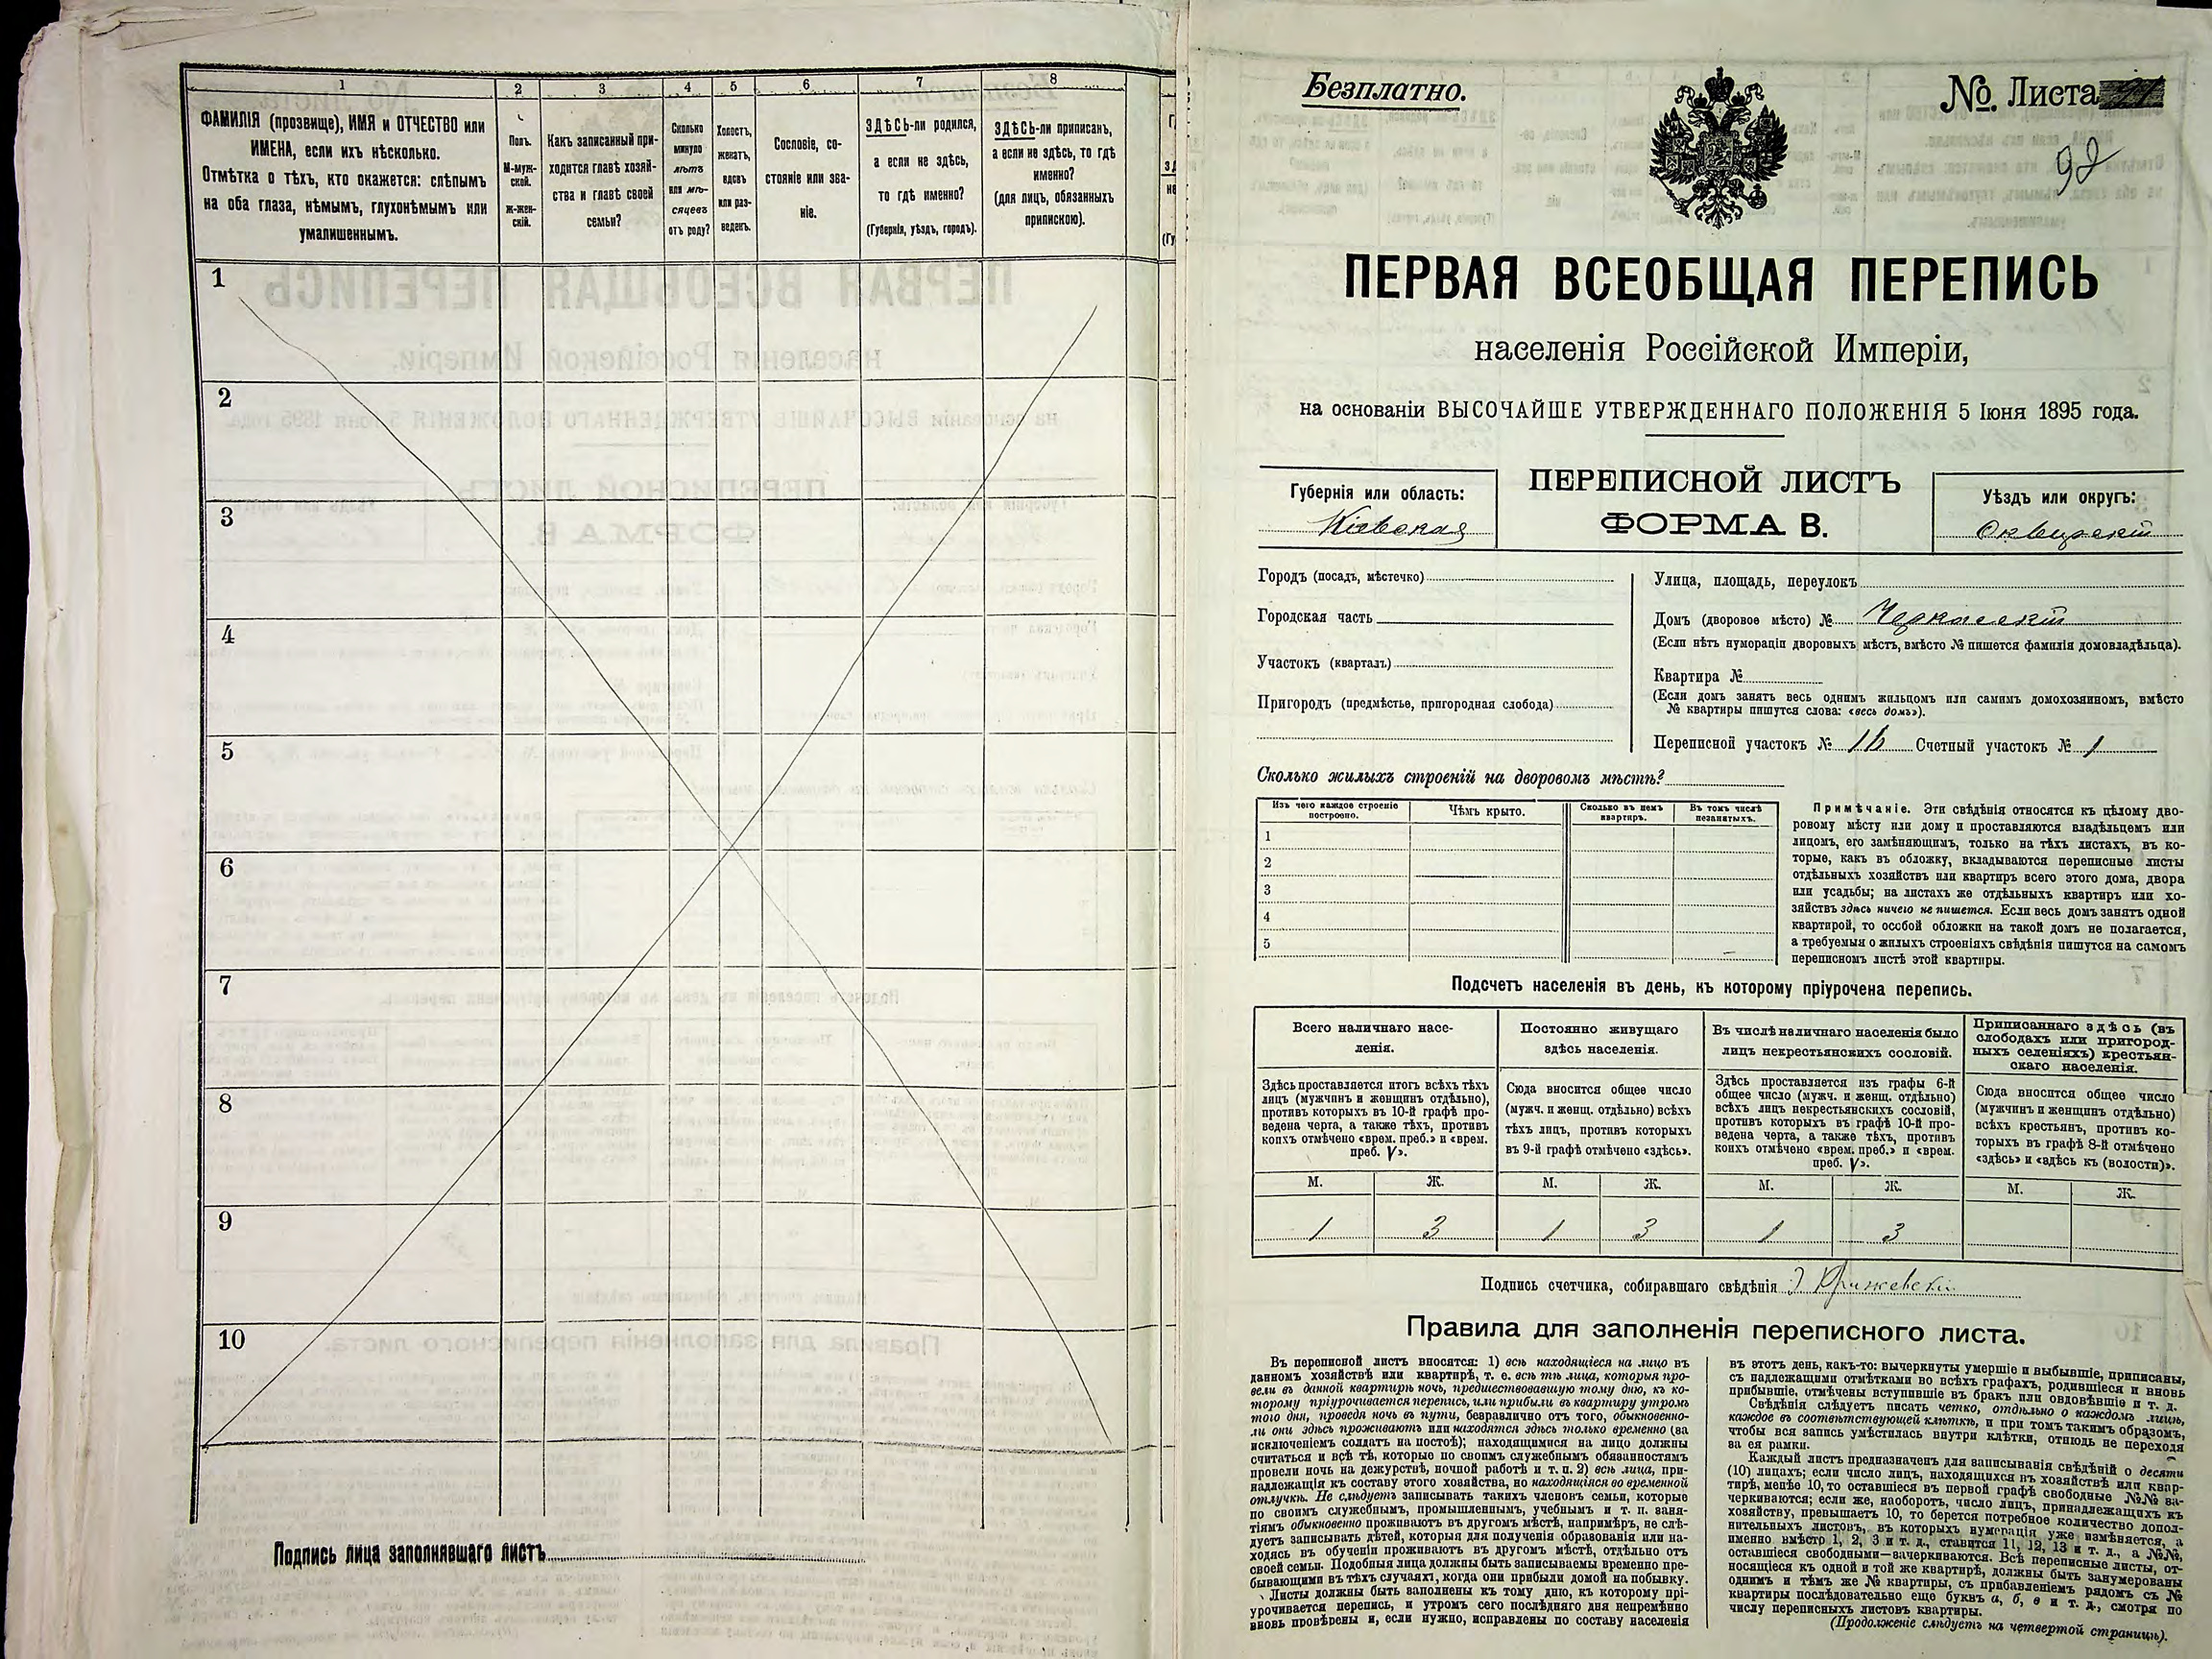 1
2
3
4
5
6
7
8
ФАМИЛІЯ (прозвище), ИМЯ и ОТЧЕСТВО или
ИМЕНА, если ихъ нѣсколько.
Отмѣтка о тѣхъ, кто окажется: слѣпымъ
на оба глаза, нѣмымъ, глухонѣмымъ или
умалишеннымъ.
Полъ.
М-муж-
ской.
ж-жен-
скій.
Какъ записанный при-
ходится главѣ хозяй-
ства и главѣ своей
семьи?
Сколько
минуло
лѣтъ
или мѣ-
сяцевъ
отъ роду?
Холостъ,
женатъ,
вдовъ
или раз-
веденъ.
Сословіе, со-
стояніе или зва-
ніе.
ЗДѢСЬ-ли родился,
а если не здѣсь,
то гдѣ именно?
(Губернія, уѣздъ, городъ).
ЗДѢСЬ-ли приписанъ,
а если не здѣсь, то гдѣ
именно?
(для лицъ, обязанныхъ
припискою).
1
2
3
4
5
6
7
8
9
10
Подпись лица заполнявшаго листъ
Безплатно.
№. Листа
98
ПЕРВАЯ ВСЕОБЩАЯ ПЕРЕПИСЬ
населенія Россійской Имперіи,
на основаніи ВЫСОЧАЙШЕ УТВЕРЖДЕННАГО ПОЛОЖЕНІЯ 5 Іюня 1895 года.
Губернія или область:
Кіевская
ПЕРЕПИСНОЙ ЛИСТЪ
ФОРМА В.
Уѣздъ или округъ:
Сквирскій
Городъ (посадъ, мѣстечко)
Городская часть
Участокъ (кварталъ)
Пригородъ (предмѣстье, пригородная слобода)
Улица, площадь, переулокъ
Домъ (дворовое мѣсто) № Черкасскій
(Если нѣтъ нумораціи дворовыхъ мѣстъ, вмѣсто № пишется фамилія домовладѣльца).
Квартира №
(Если домъ занятъ весь однимъ жильцомъ или самимъ домохозяиномъ, вмѣсто
№ квартиры пишутся слова: «весь домъ»).
Переписной участокъ № 16 Счетный участокъ № 1
Сколько жилыхъ строеній на дворовомъ мѣстѣ?
Изъ чего каждое строеніе
построено.
Чѣмъ крыто.
Сколько въ немъ
квартиръ.
Въ томъ числѣ
незанятыхъ.
1
2
3
4
5
Примѣчаніе. Эти свѣдѣнія относятся къ цѣлому дво-
ровому мѣсту или дому и проставляются владѣльцемъ или
лицомъ, его замѣняющимъ, только на тѣхъ листахъ, въ ко-
торые, какъ въ обложку, вкладываются переписные листы
отдѣльныхъ хозяйствъ или квартиръ всего этого дома, двора
или усадьбы; на листахъ же отдѣльныхъ квартиръ или хо-
зяйствъ здѣсь ничего не пишется. Если весь домъ занятъ одной
квартирой, то особой обложки на такой домъ не полагается,
а требуемыя о жилыхъ строеніяхъ свѣдѣнія пишутся на самомъ
переписномъ листѣ этой квартиры.
Подсчетъ населенія въ день, къ которому пріурочена перепись.
Всего наличнаго насе-
ленія.
Здѣсь проставляется итогъ всѣхъ тѣхъ
лицъ (мужчинъ и женщинъ отдѣльно),
противъ которыхъ въ 10-й графѣ про-
ведена черта, а также тѣхъ, противъ
коихъ отмѣчено «врем. преб.» и «врем.
преб. V».
Постоянно живущаго
здѣсь населенія.
Сюда вносится общее число
(мужч. и женщ. отдѣльно) всѣхъ
тѣхъ лицъ, противъ которыхъ
въ 9-й графѣ отмѣчено «здѣсь».
Въ числѣ наличнаго населенія было
лицъ некрестьянскихъ сословій.
Здѣсь проставляется изъ графы 6-й
общее число (мужч. и женщ. отдѣльно)
всѣхъ лицъ некрестьянскихъ сословій,
противъ которыхъ въ графѣ 10-й про-
ведена черта, а также тѣхъ, противъ
коихъ отмѣчено «врем. преб.» и «врем.
преб. V».
Приписаннаго здѣсь (въ
слободахъ или пригород-
ныхъ селеніяхъ) крестьян-
скаго населенія.
Сюда вносится общее число
(мужчинъ и женщинъ отдѣльно)
всѣхъ крестьянъ, противъ ко-
торыхъ въ графѣ 8-й отмѣчено
«здѣсь» и «здѣсь къ (волости)».
М. Ж. М. Ж. М. Ж. М. Ж.
1 3 1 3 1 3
Подпись счетчика, собиравшаго свѣдѣнія Крижевскій
Правила для заполненія переписного листа.
Въ переписной листъ вносятся: 1) всѣ находящіеся на лицо въ
данномъ хозяйствѣ или квартирѣ, т. е. всѣ тѣ лица, которыя про-
вели въ данной квартирѣ ночь, предшествовавшую тому дню, къ ко-
торому пріурочивается перепись, или прибыли въ квартиру утромъ
того дня, проведя ночь въ пути, безразлично отъ того, обыкновенно-
ли они здѣсь проживаютъ или находятся здѣсь только временно (за
исключеніемъ солдатъ на постоѣ); находящимися на лицо должны
считаться и всѣ тѣ, которые по своимъ служебнымъ обязанностямъ
провели ночь на дежурствѣ, ночной работѣ и т. п. 2) всѣ лица, при-
надлежащія къ составу этого хозяйства, но находящіяся во временной
отлучкѣ. Не слѣдуетъ записывать такихъ членовъ семьи, которые
по своимъ служебнымъ, промышленнымъ, учебнымъ и т. п. заня-
тіямъ обыкновенно проживаютъ въ другомъ мѣстѣ, напримѣръ, не слѣ-
дуетъ записывать дѣтей, которыя для полученія образованія или на-
ходясь въ обученіи проживаютъ въ другомъ мѣстѣ, отдѣльно отъ
своей семьи. Подобныя лица должны быть записываемы временно пре-
бывающими въ тѣхъ случаяхъ, когда они прибыли домой на побывку.
Листы должны быть заполнены къ тому дню, къ которому прі-
урочивается перепись, и утромъ сего послѣдняго дня непремѣнно
вновь провѣрены и, если нужно, исправлены по составу населенія
въ этотъ день, какъ-то: вычеркнуты умершіе и выбывшіе, приписаны,
съ надлежащими отмѣтками во всѣхъ графахъ, родившіеся и вновь
прибывшіе, отмѣчены вступившіе въ бракъ или овдовѣвшіе и т. д.
Свѣдѣнія слѣдуетъ писать четко, отдѣльно о каждомъ лицѣ,
каждое въ соотвѣтствующей клѣткѣ, и при томъ такимъ образомъ,
чтобы вся запись умѣстилась внутри клѣтки, отнюдь не переходя
за ея рамки.
Каждый листъ предназначенъ для записыванія свѣдѣній о десяти
(10) лицахъ; если число лицъ, находящихся въ хозяйствѣ или квар-
тирѣ, менѣе 10, то оставшіеся въ первой графѣ свободные №№ за-
черкиваются; если же, наоборотъ, число лицъ, принадлежащихъ къ
хозяйству, превышаетъ 10, то берется потребное количество допол-
нительныхъ листовъ, въ которыхъ нумерація уже измѣняется, а
именно вмѣсто 1, 2, 3 и т. д., ставится 11, 12, 13 и т. д., а №№,
оставшіеся свободными—зачеркиваются. Всѣ переписные листы, от-
носящіеся къ одной и той же квартирѣ, должны быть занумерованы
однимъ и тѣмъ же № квартиры, съ прибавленіемъ рядомъ съ №
квартиры послѣдовательно еще буквъ а, б, в и т. д., смотря по
числу переписныхъ листовъ квартиры.
(Продолженіе слѣдуетъ на четвертой страницѣ).